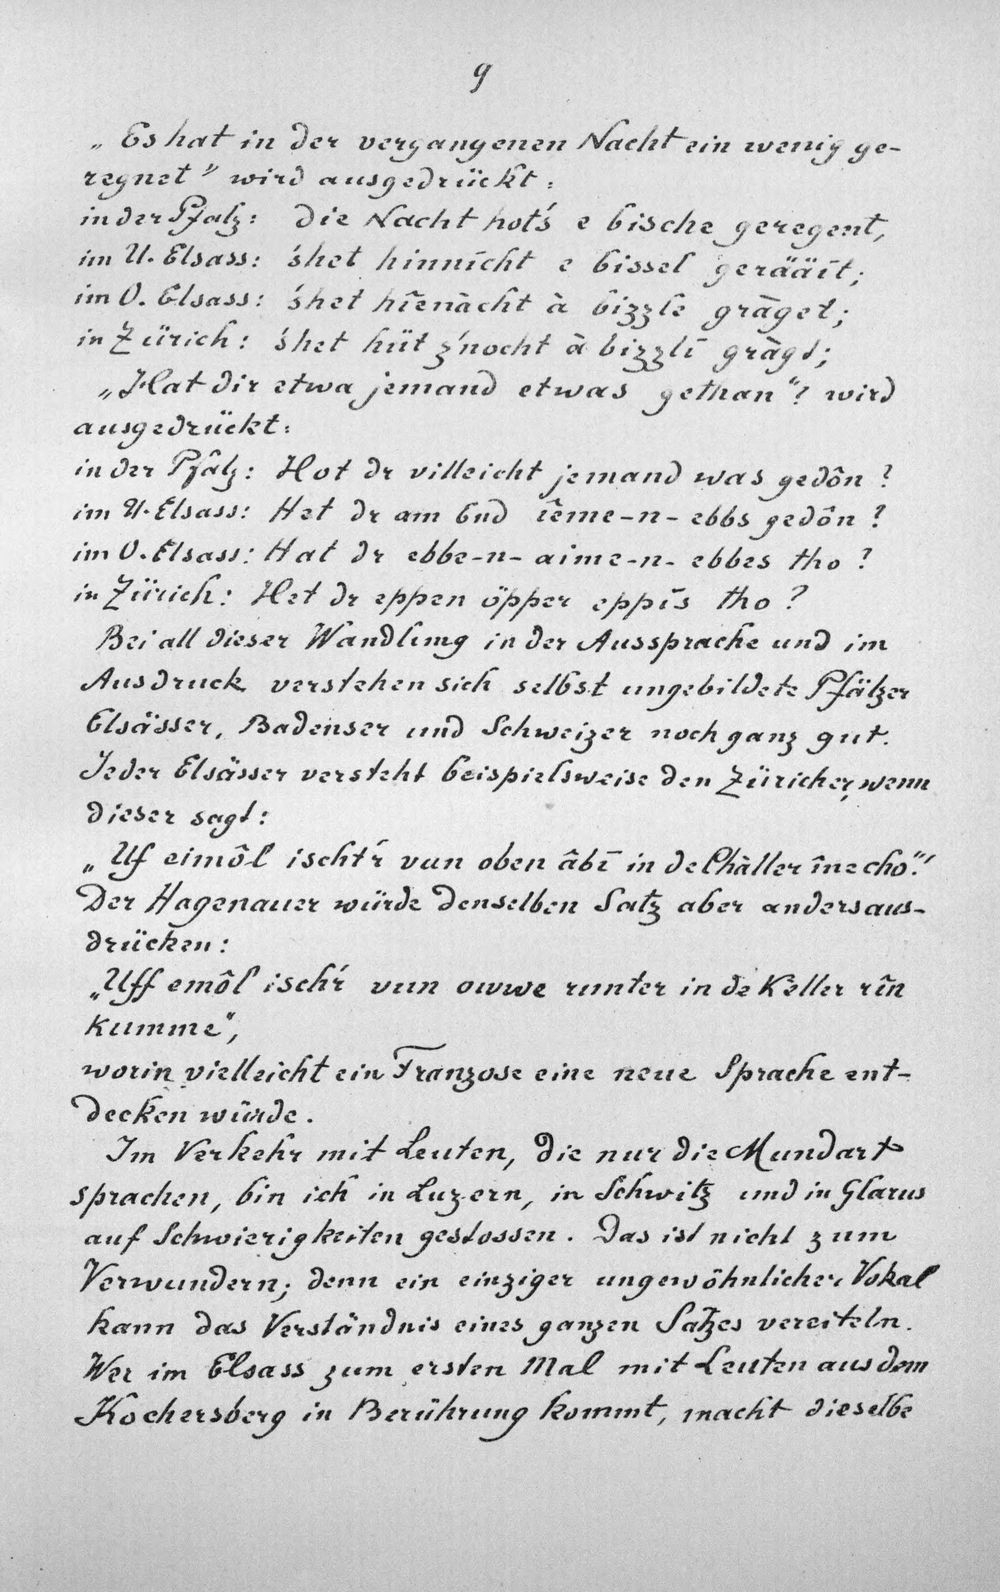 9
„Es hat in der vergangenen Nacht ein wenig ge-
regnet" wird ausgedrückt:
in der Pfalz: die Nacht hot's e bische geregent,
im U. Elsass: 's het hinnīcht e bissel gerääīt;
im O. Elsass: 's het hîenàcht à bizzle gràget;
in Zürich: 's het hüt z'nocht à bizzlī gràgt;
„Hat dir etwa jemand etwas gethan"? wird
ausgedrückt:
in der Pfâlz: Hot dr villeicht jemand was gedôn?
im U. Elsass: Het dr am End îeme-n- ebbs gedôn?
im O. Elsass: Hat dr ebbe-n- aime-n- ebbes tho?
in Zürich: Het dr eppen öpper eppīs tho?
Bei all dieser Wandlung in der Aussprache und im
Ausdruck verstehen sich selbst ungebildete Pfälzer
Elsässer, Badenser und Schweizer noch ganz gut.
Jeder Elsässer versteht beispielsweise den Züricher, wenn
dieser sagt:
„Uf eimôl ischt'r vun oben âbī in de Chàller îne cho".
Der Hagenauer würde denselben Satz aber anders aus-
drücken:
„Uff emôl isch'r vun owwe runter in de Keller rîn
kumme",
worin vielleicht ein Franzose eine neue Sprache ent-
decken würde.
Im Verkehr mit Leuten, die nur die Mundart
sprachen, bin ich in Luzern, in Schwitz und in Glarus
auf Schwierigkeiten gestossen. Das ist nicht zum
Verwundern; denn ein einziger ungewöhnlicher Vokal
kann das Verständnis eines ganzen Satzes vereiteln.
Wer im Elsass zum ersten Mal mit Leuten aus dem
Kochersberg in Berührung kommt, macht dieselbe